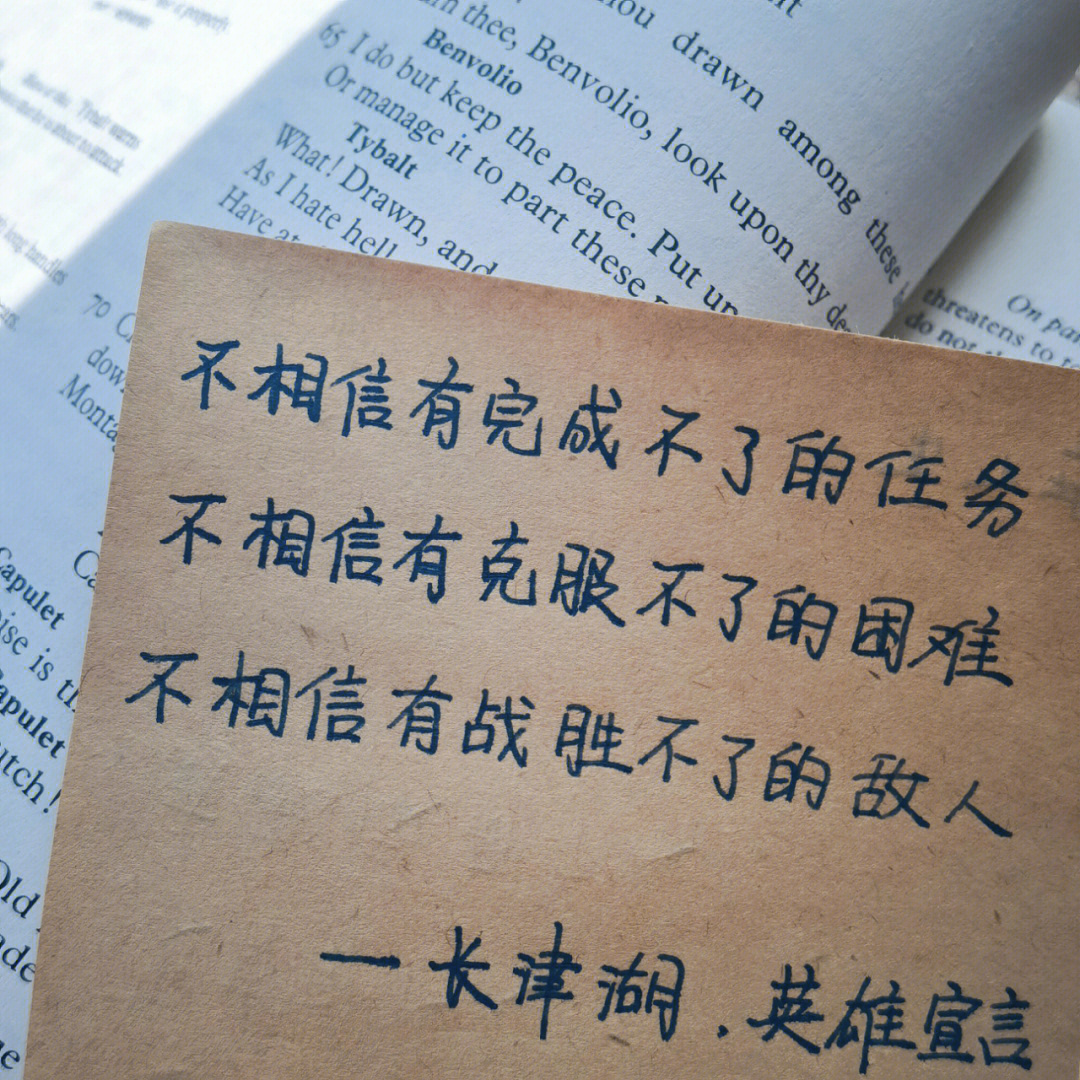 thou drawn among these
thee, Benvolio, look upon thy
Benvolio
65 I do but keep the peace. Put up
Or manage it to part these
Tybalt
What! Drawn, and
As I hate hell
Have at
70
Capulet
is
Capulet
On
threatens to
do not
不相信有完成不了的任务
不相信有克服不了的困难
不相信有战胜不了的敌人
一长津湖.英雄宣言